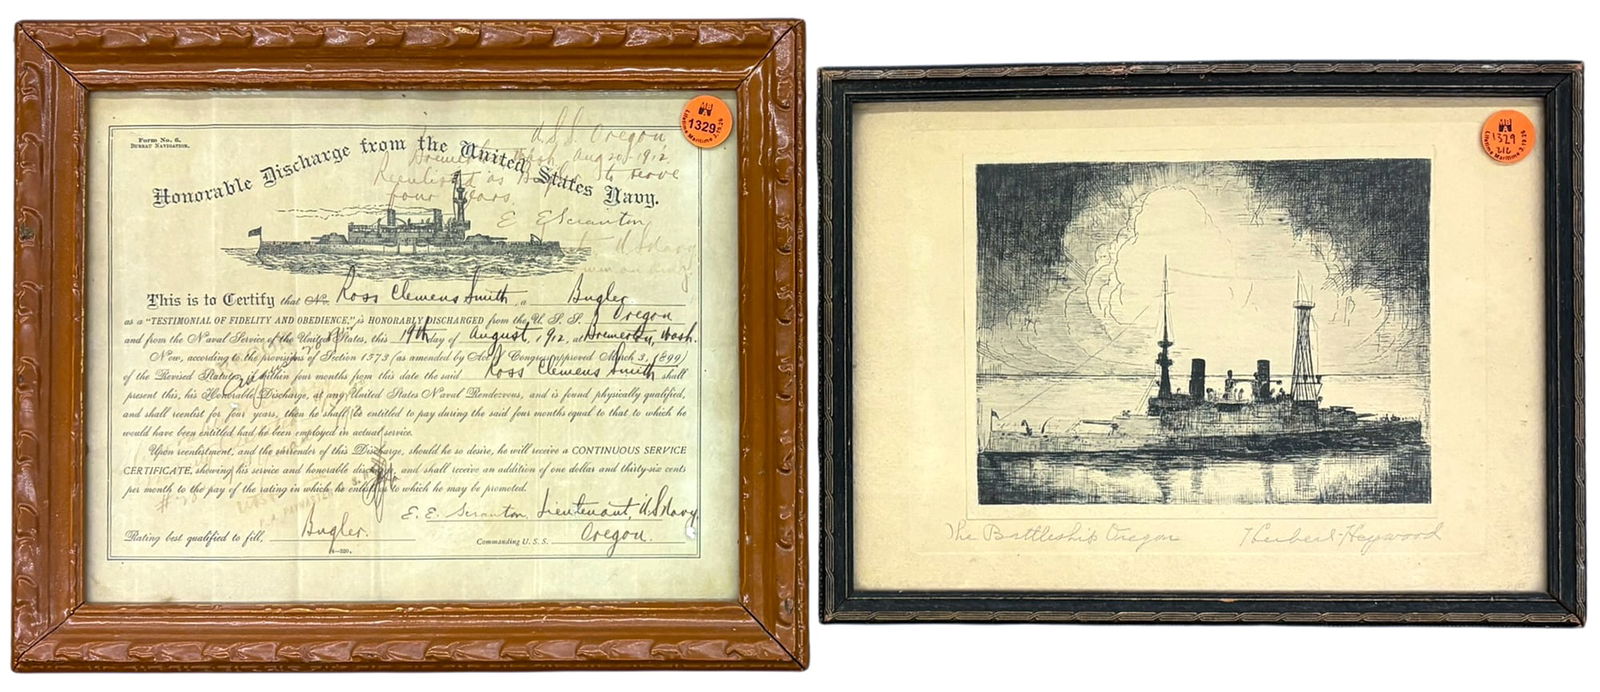 Form No. 6.
BUREAU NAVIGATION.
Honorable Discharge from the United States Navy.
U.S.S. Oregon
Bremerton Wash Aug 20 1912
Reenlisted as Bugler to serve
four years.
E E Scranton
U S Navy
This is to Certify that No. Ross Clemens Smith, a Bugler
as a "TESTIMONIAL OF FIDELITY AND OBEDIENCE," is HONORABLY DISCHARGED from the U. S. S. Oregon
and from the Naval Service of the United States, this 19th day of August, 1912, at Bremerton, Wash.
Now, according to the provisions of Section 1573 (as amended by Act of Congress approved March 3, 1899)
of the Revised Statutes, if within four months from this date the said Ross Clemens Smith shall
present this, his Honorable Discharge, at any United States Naval Rendezvous, and is found physically qualified,
and shall reenlist for four years, then he shall be entitled to pay during the said four months equal to that to which he
would have been entitled had he been employed in actual service.
Upon reenlistment, and the surrender of this Discharge, should he so desire, he will receive a CONTINUOUS SERVICE
CERTIFICATE, showing his service and honorable discharge, and shall receive an addition of one dollar and thirty-six cents
per month to the pay of the rating in which he enlists or to which he may be promoted.
E. E. Scranton, Lieutenant, U.S. Navy,
Rating best qualified to fill, Bugler.
Commanding U. S. S. Oregon.
1329
Lifetime Maritime 2.19.26
The Battleship Oregon
Herbert Heywood
1329
2/2
Lifetime Maritime 2.19.26